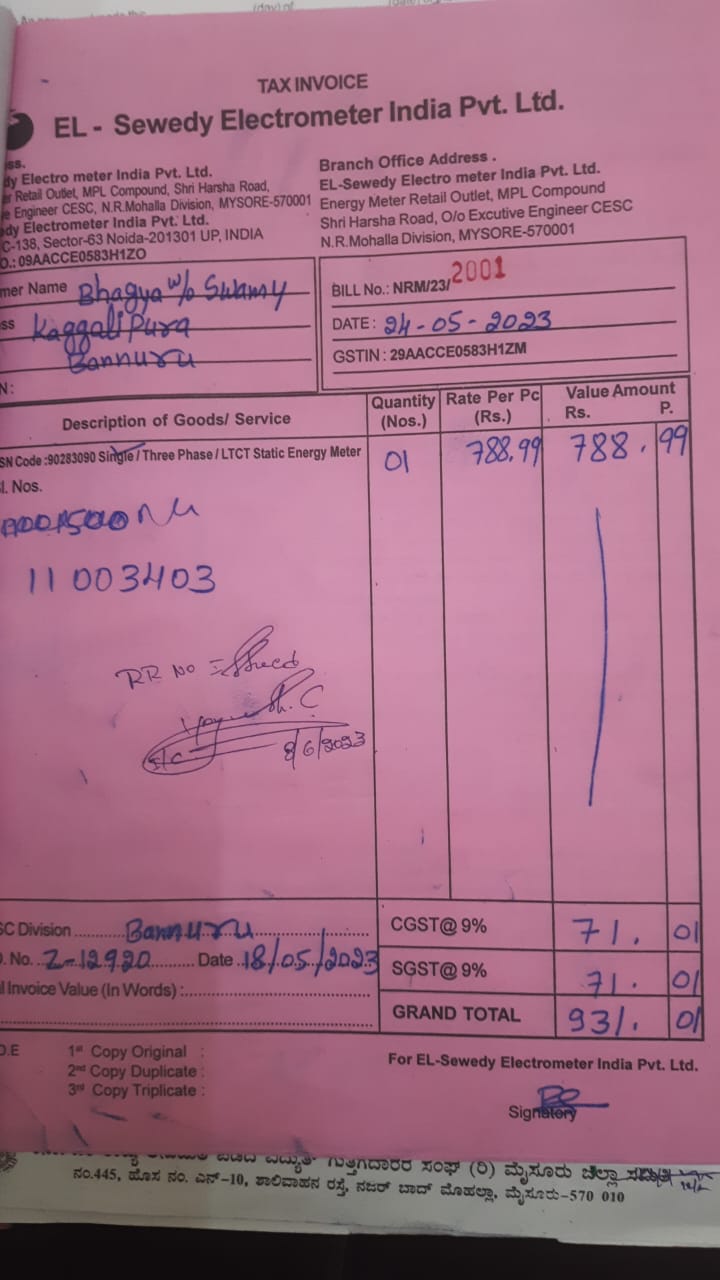 (day) of
TAX INVOICE
EL - Sewedy Electrometer India Pvt. Ltd.
ss.
dy Electro meter India Pvt. Ltd.
er Retail Outlet, MPL Compound, Shri Harsha Road,
e Engineer CESC, N.R.Mohalla Division, MYSORE-570001
edy Electrometer India Pvt. Ltd.
C-138, Sector-63 Noida-201301 UP, INDIA
O.: 09AACCE0583H1ZO
Branch Office Address .
EL-Sewedy Electro meter India Pvt. Ltd.
Energy Meter Retail Outlet, MPL Compound
Shri Harsha Road, O/o Excutive Engineer CESC
N.R.Mohalla Division, MYSORE-570001
mer Name Bhagya w/o Swamy
ss Kaggalipura
Bannuru
N:
BILL No.: NRM/23/ 2001
DATE : 24-05-2023
GSTIN : 29AACCE0583H1ZM
Description of Goods/ Service Quantity (Nos.) Rate Per Pc (Rs.) Value Amount Rs. P.
SN Code :90283090 Single / Three Phase / LTCT Static Energy Meter 01 788.99 788. 99
l. Nos.
11003403
RR NO =
8/6/2023
SC Division Bannuru
. No. Z-12920 Date 18/05/2023
l Invoice Value (In Words) :
CGST@ 9% 71. 01
SGST@ 9% 71. 01
GRAND TOTAL 931. 01
O.E
1st Copy Original :
2nd Copy Duplicate :
3rd Copy Triplicate :
For EL-Sewedy Electrometer India Pvt. Ltd.
Signatory
ವಿದ್ಯುತ್ ಗುತ್ತಿಗೆದಾರರ ಸಂಘ (ರಿ) ಮೈಸೂರು ಜಿಲ್ಲಾ ಸಮಿತಿ
ನಂ.445, ಹೊಸ ನಂ. ಎನ್-10, ಶಾಲಿವಾಹನ ರಸ್ತೆ, ನಜರ್ ಬಾದ್ ಮೊಹಲ್ಲಾ, ಮೈಸೂರು-570 010